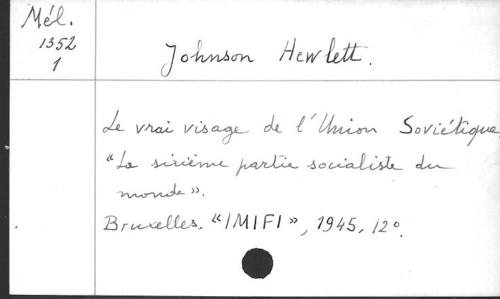 Mél.
1352
1
Johnson Hewlett.
Le vrai visage de l'Union Soviétique.
"La sixième partie socialiste du
monde".
Bruxelles. «IMIFI», 1945, 12°.